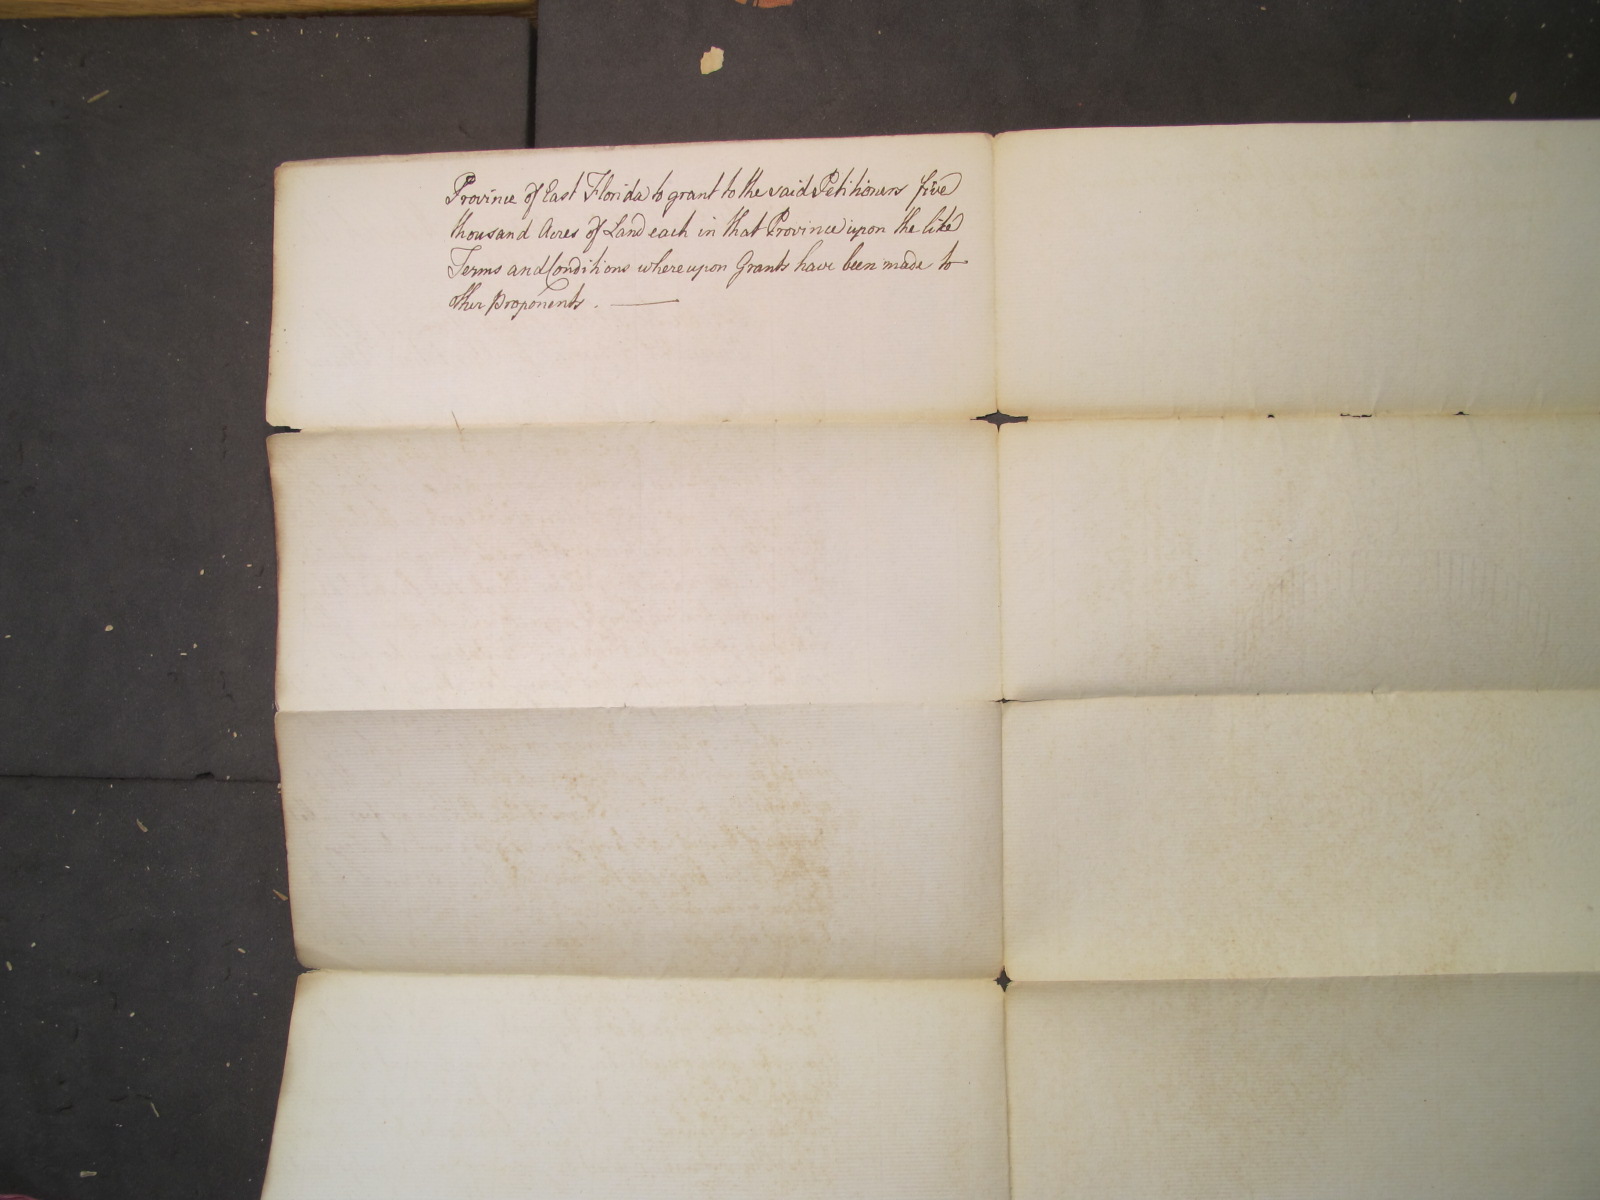 Province of East Florida to grant to the said Petitioners five
thousand Acres of Land each in that Province upon the like
Terms and Conditions whereupon Grants have been made to
other Proponents. —